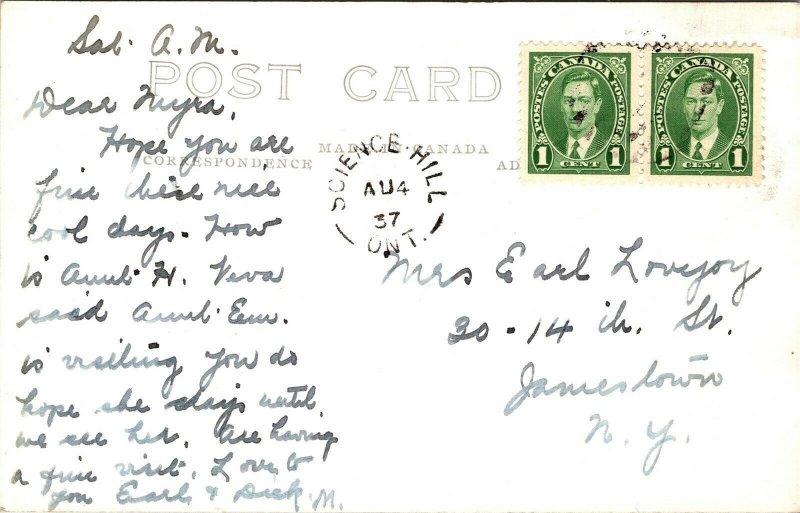 Sat. A.M.
POST CARD
Dear Myra,
Hope you are
MADE IN CANADA
CORRESPONDENCE
AD
fine these nice
cool days. How
is Aunt H. Neva
said Aunt Em.
is visiting you do
hope she stays until
we see her. Are having
a fine visit. Love to
you Earl & Dick. M.
SCIENCE HILL
AU 4
37
ONT.
POSTES CANADA POSTAGE
1 CENT 1
POSTES CANADA POSTAGE
1 CENT 1
Mrs Earl Lovejoy
30-14 th. St.
Jamestown
N.Y.